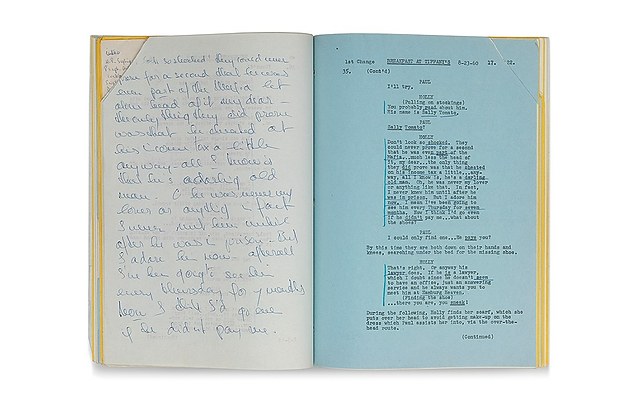 so shocked! They could never
prove for a second that he was
even part of the Mafia let
alone head of it my dear –
the only thing they did prove
was that he cheated at
his income tax a little
anyway – all I know is
that he's a darling old
man. O he was never my
lover or anything – in fact
I never met him until
after he was in prison. But
I adore him now – after all
I've been going to see him
every Thursday for 7 months
now I think I'd go even
if he didn't pay me.
1st Change BREAKFAST AT TIFFANY'S 8-23-60 17. 22.
35. (Cont'd)
PAUL
I'll try.
HOLLY
(Pulling on stockings)
You probably read about him.
His name is Sally Tomato.
PAUL
Sally Tomato?
HOLLY
Don't look so shocked. They
could never prove for a second
that he was even part of the
Mafia...much less the head of
it, my dear...the only thing
they did prove was that he cheated
on his income tax a little...any-
way, all I know is, he's a darling
old man. Oh, he was never my lover
or anything like that. In fact,
I never knew him until after he
was in prison. But I adore him
now. I mean I've been going to
see him every Thursday for seven
months. Now I think I'd go even
if he didn't pay me...what about
the shoes?
PAUL
I could only find one...He pays you?
By this time they are both down on their hands and
knees, searching under the bed for the missing shoe.
HOLLY
That's right. Or anyway his
lawyer does. If he is a lawyer
which I doubt since he doesn't seem
to have an office, just an answering
service and he always wants you to
meet him at Hamburg Heaven.
(Finding the shoe)
...there you are, you sneak!
During the following, Holly finds her scarf, which she
puts over her head to avoid getting make-up on the
dress which Paul assists her into, via the over-the-
head route.
(Continued)